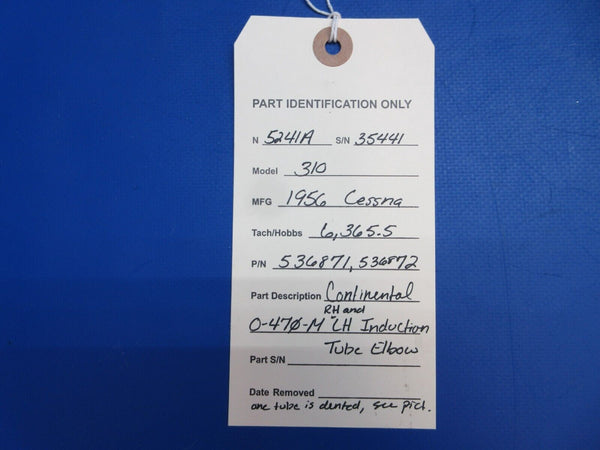 PART IDENTIFICATION ONLY
N 5241A S/N 35441
Model 310
MFG 1956 Cessna
Tach/Hobbs 6,365.5
P/N 536871, 536872
Part Description Continental
RH and
O-470-M LH Induction
Tube Elbow
Part S/N
Date Removed
one tube is dented, see pict.